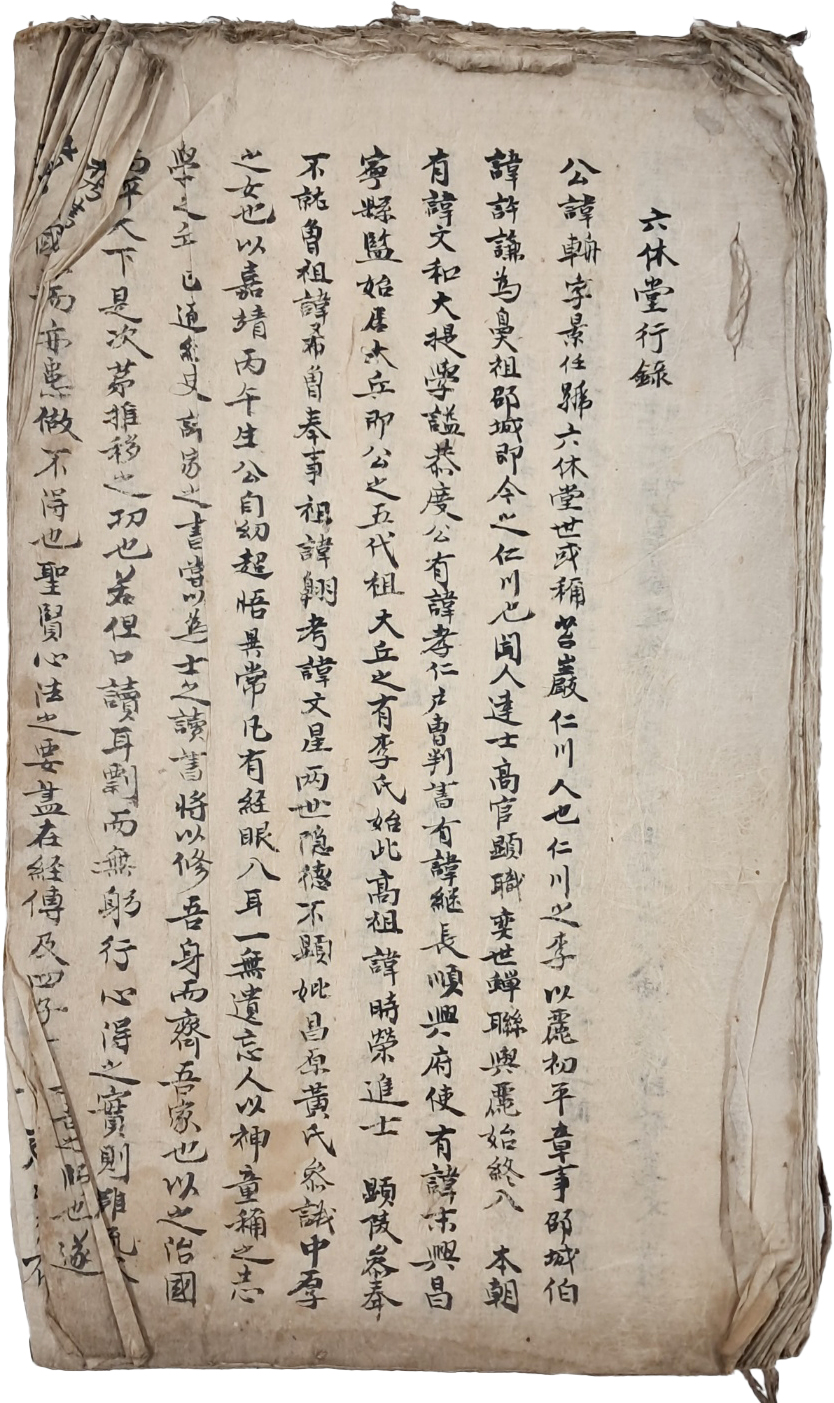 六休堂行錄
公諱輈字景任號六休堂世或稱苔巖仁川人也仁川之李以麗初平章事邵城伯
諱許謙為鼻祖邵城即今之仁川也聞人達士高官顯職奕世蟬聯與麗始終入 本朝
有諱文和大提學謚恭度公有諱孝仁戶曹判書有諱繼長順興府使有諱末興昌
寧縣監始居大丘即公之五代祖大丘之有李氏始此高祖諱時榮進士 顯陵參奉
不就曾祖諱希曾奉事祖諱翱考諱文星兩世隱德不顯妣昌原黃氏參議中孚
之女也以嘉靖丙午生公自幼超悟異常凡有經眼入耳一無遺忘人以神童稱之志
學之年已通經史諸家之書嘗以為士之讀書將以修吾身而齊吾家也以之治國
而平天下是次第推移之功也若但口讀耳剽而無躬行心得之實則雖
國而亦惡做不得也聖賢心法之要盖在經傳及四子
也遂